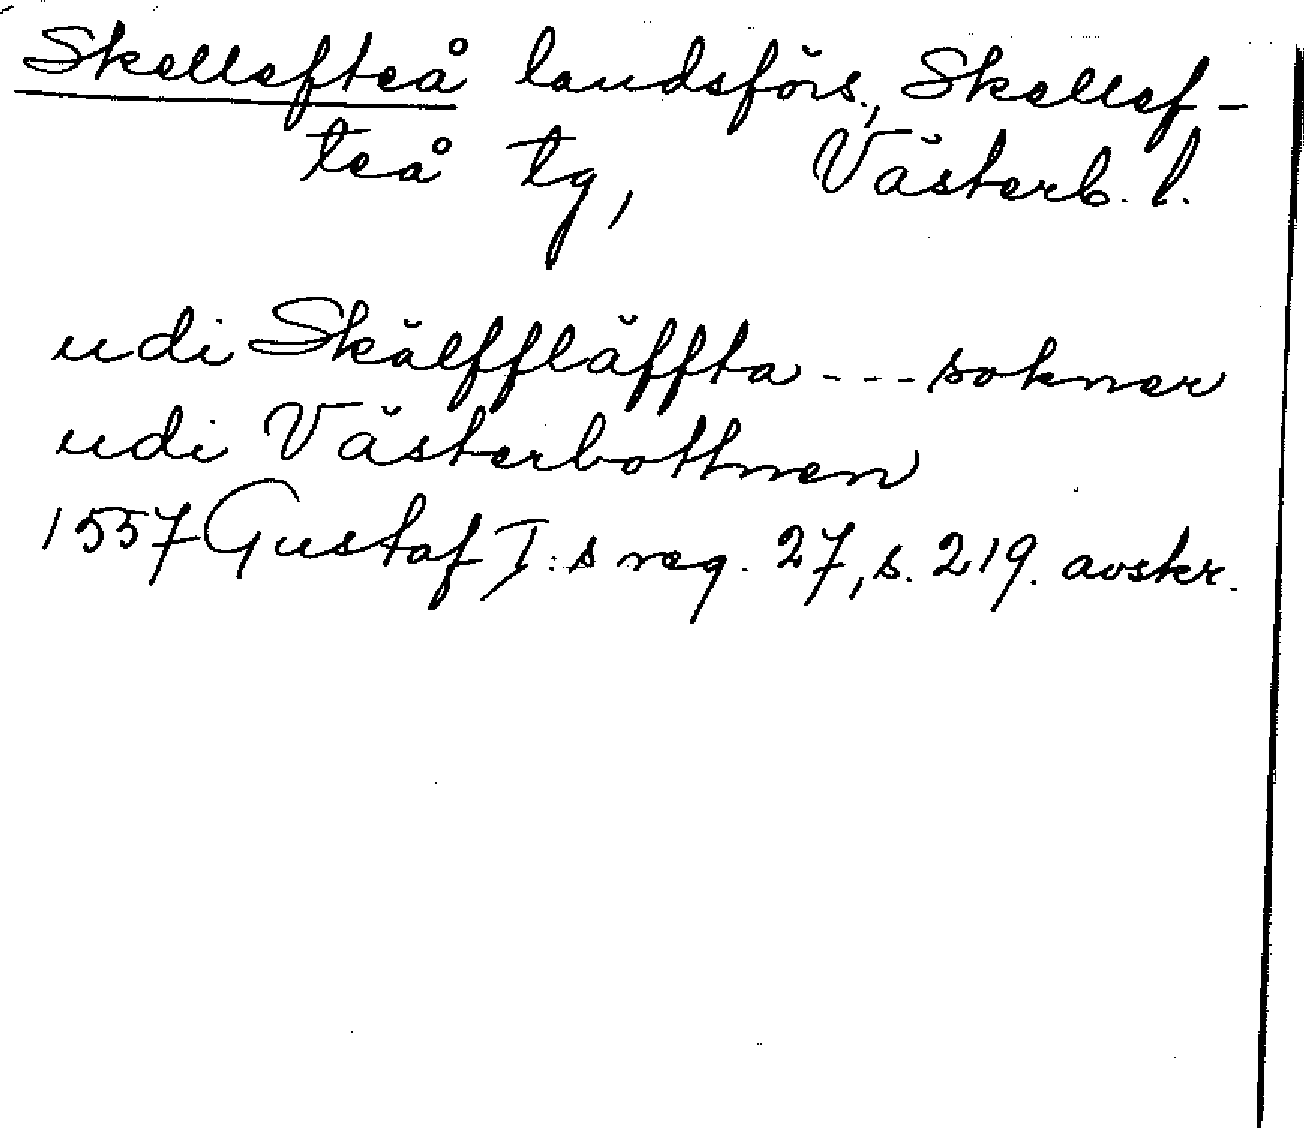 Skellefteå landsförs., Skellef-
teå tg, Västerb. l.
udi Skälffläffta - - - sokner
udi Västerbottnen
1557 Gustaf I:s reg. 27, s. 219. avskr.